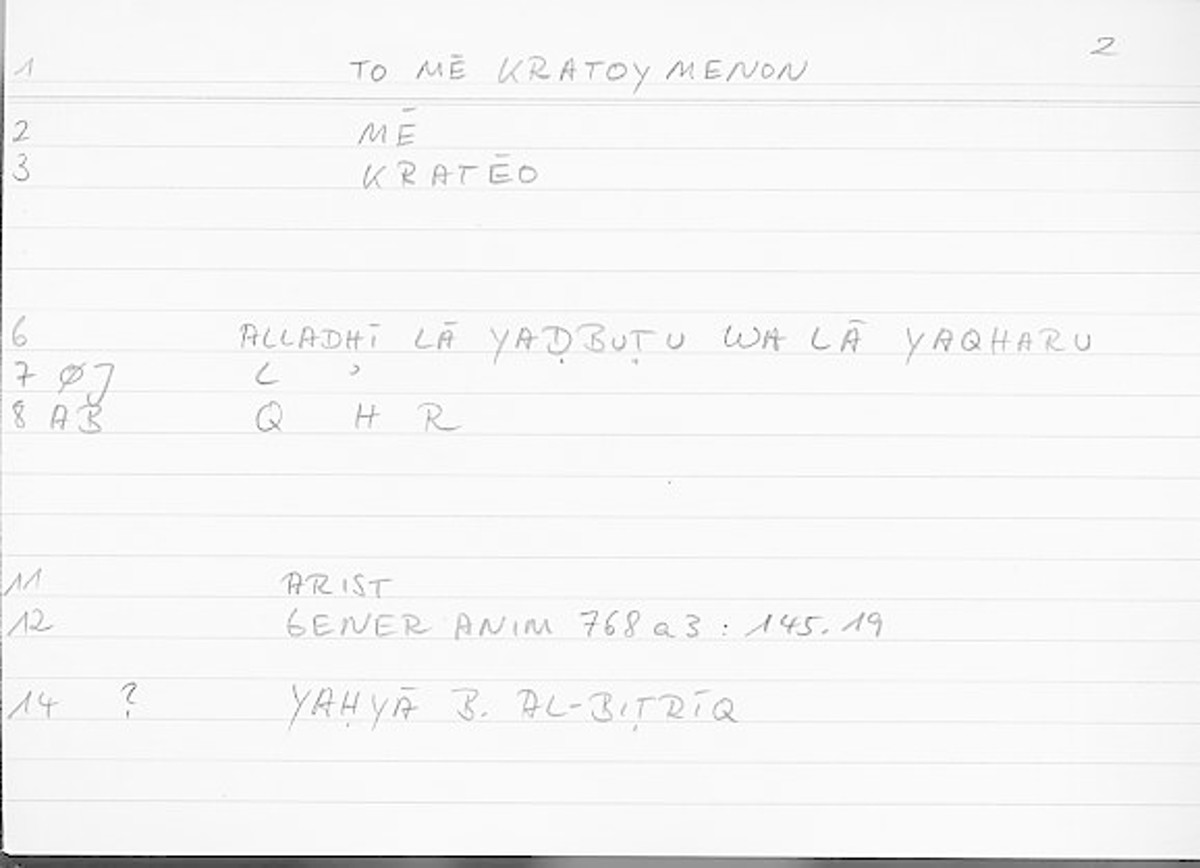 2
1 TO MĒ KRATOYMENON
2 MĒ
3 KRATĒO
6 ALLADHĪ LĀ YAḌBUṬU WA LĀ YAQHARU
7 ØJ L ʾ
8 AB Q H R
11 ARIST
12 GENER ANIM 768 a 3 : 145.19
14 ? YAḤYĀ B. AL-BIṬRĪQ